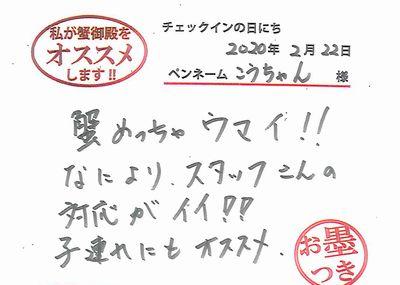 私が蟹御殿を
オススメ
します!!
チェックインの日にち
2020年 2月 22日
ペンネーム こうちゃん 様
蟹めっちゃウマイ!!
なにより、スタッフさんの
対応がイイ!!
子連れにもオススメ.
お墨
つき